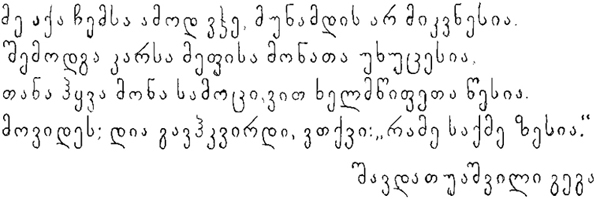 მე აქა ჩემსა ამოდ ვჯე, მუნამდის არ მიკვნესია.
შემოდგა კარსა მეფისა მონათა უხუცესია,
თანა ჰყვა მონა სამოცი, ვით ხელმწიფეთა წესია.
მოვიდეს; დია გავჰკვირდი, ვთქვი: „რამე საქმე ზესია.“
შავდათუაშვილი გეგა